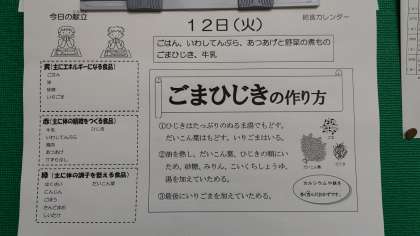 今日の献立
給食カレンダー
12日(火)
ごはん、いわしてんぷら、あつあげと野菜の煮もの
ごまひじき、牛乳
黄(主にエネルギーになる食品)
ごはん
油
砂糖
いりごま
赤(主に体の組織をつくる食品)
牛乳 ひじき
いわしてんぷら
鶏肉
あつあげ
緑(主に体の調子を整える食品)
はくさい だいこん葉
にんじん
ごぼう
さんどまめ
しいたけ
ごまひじきの作り方
①ひじきはたっぷりのぬるま湯でもどす。
だいこん葉はもどす。いりごまはいる。
②油を熱し、だいこん葉、ひじきの順にい
ため、砂糖、みりん、こいくちしょうゆ、
湯を加えていためる。
③最後にいりごまを加えていためる。
だいこん葉
ひじき
カルシウムや鉄を
多く含んだおかずです。